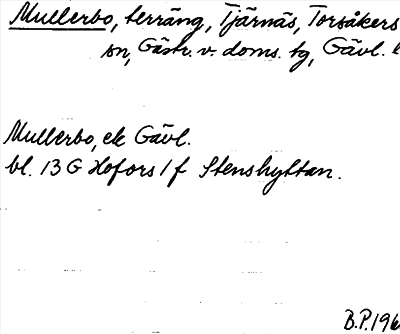 Mullerbo, terräng, Tjärnäs, Torsåkers
sn, Gästr. v. doms. tg, Gävl. l
Mullerbo, ek Gävl.
bl. 13 G Hofors 1 f Stenshyttan.
B.P. 196